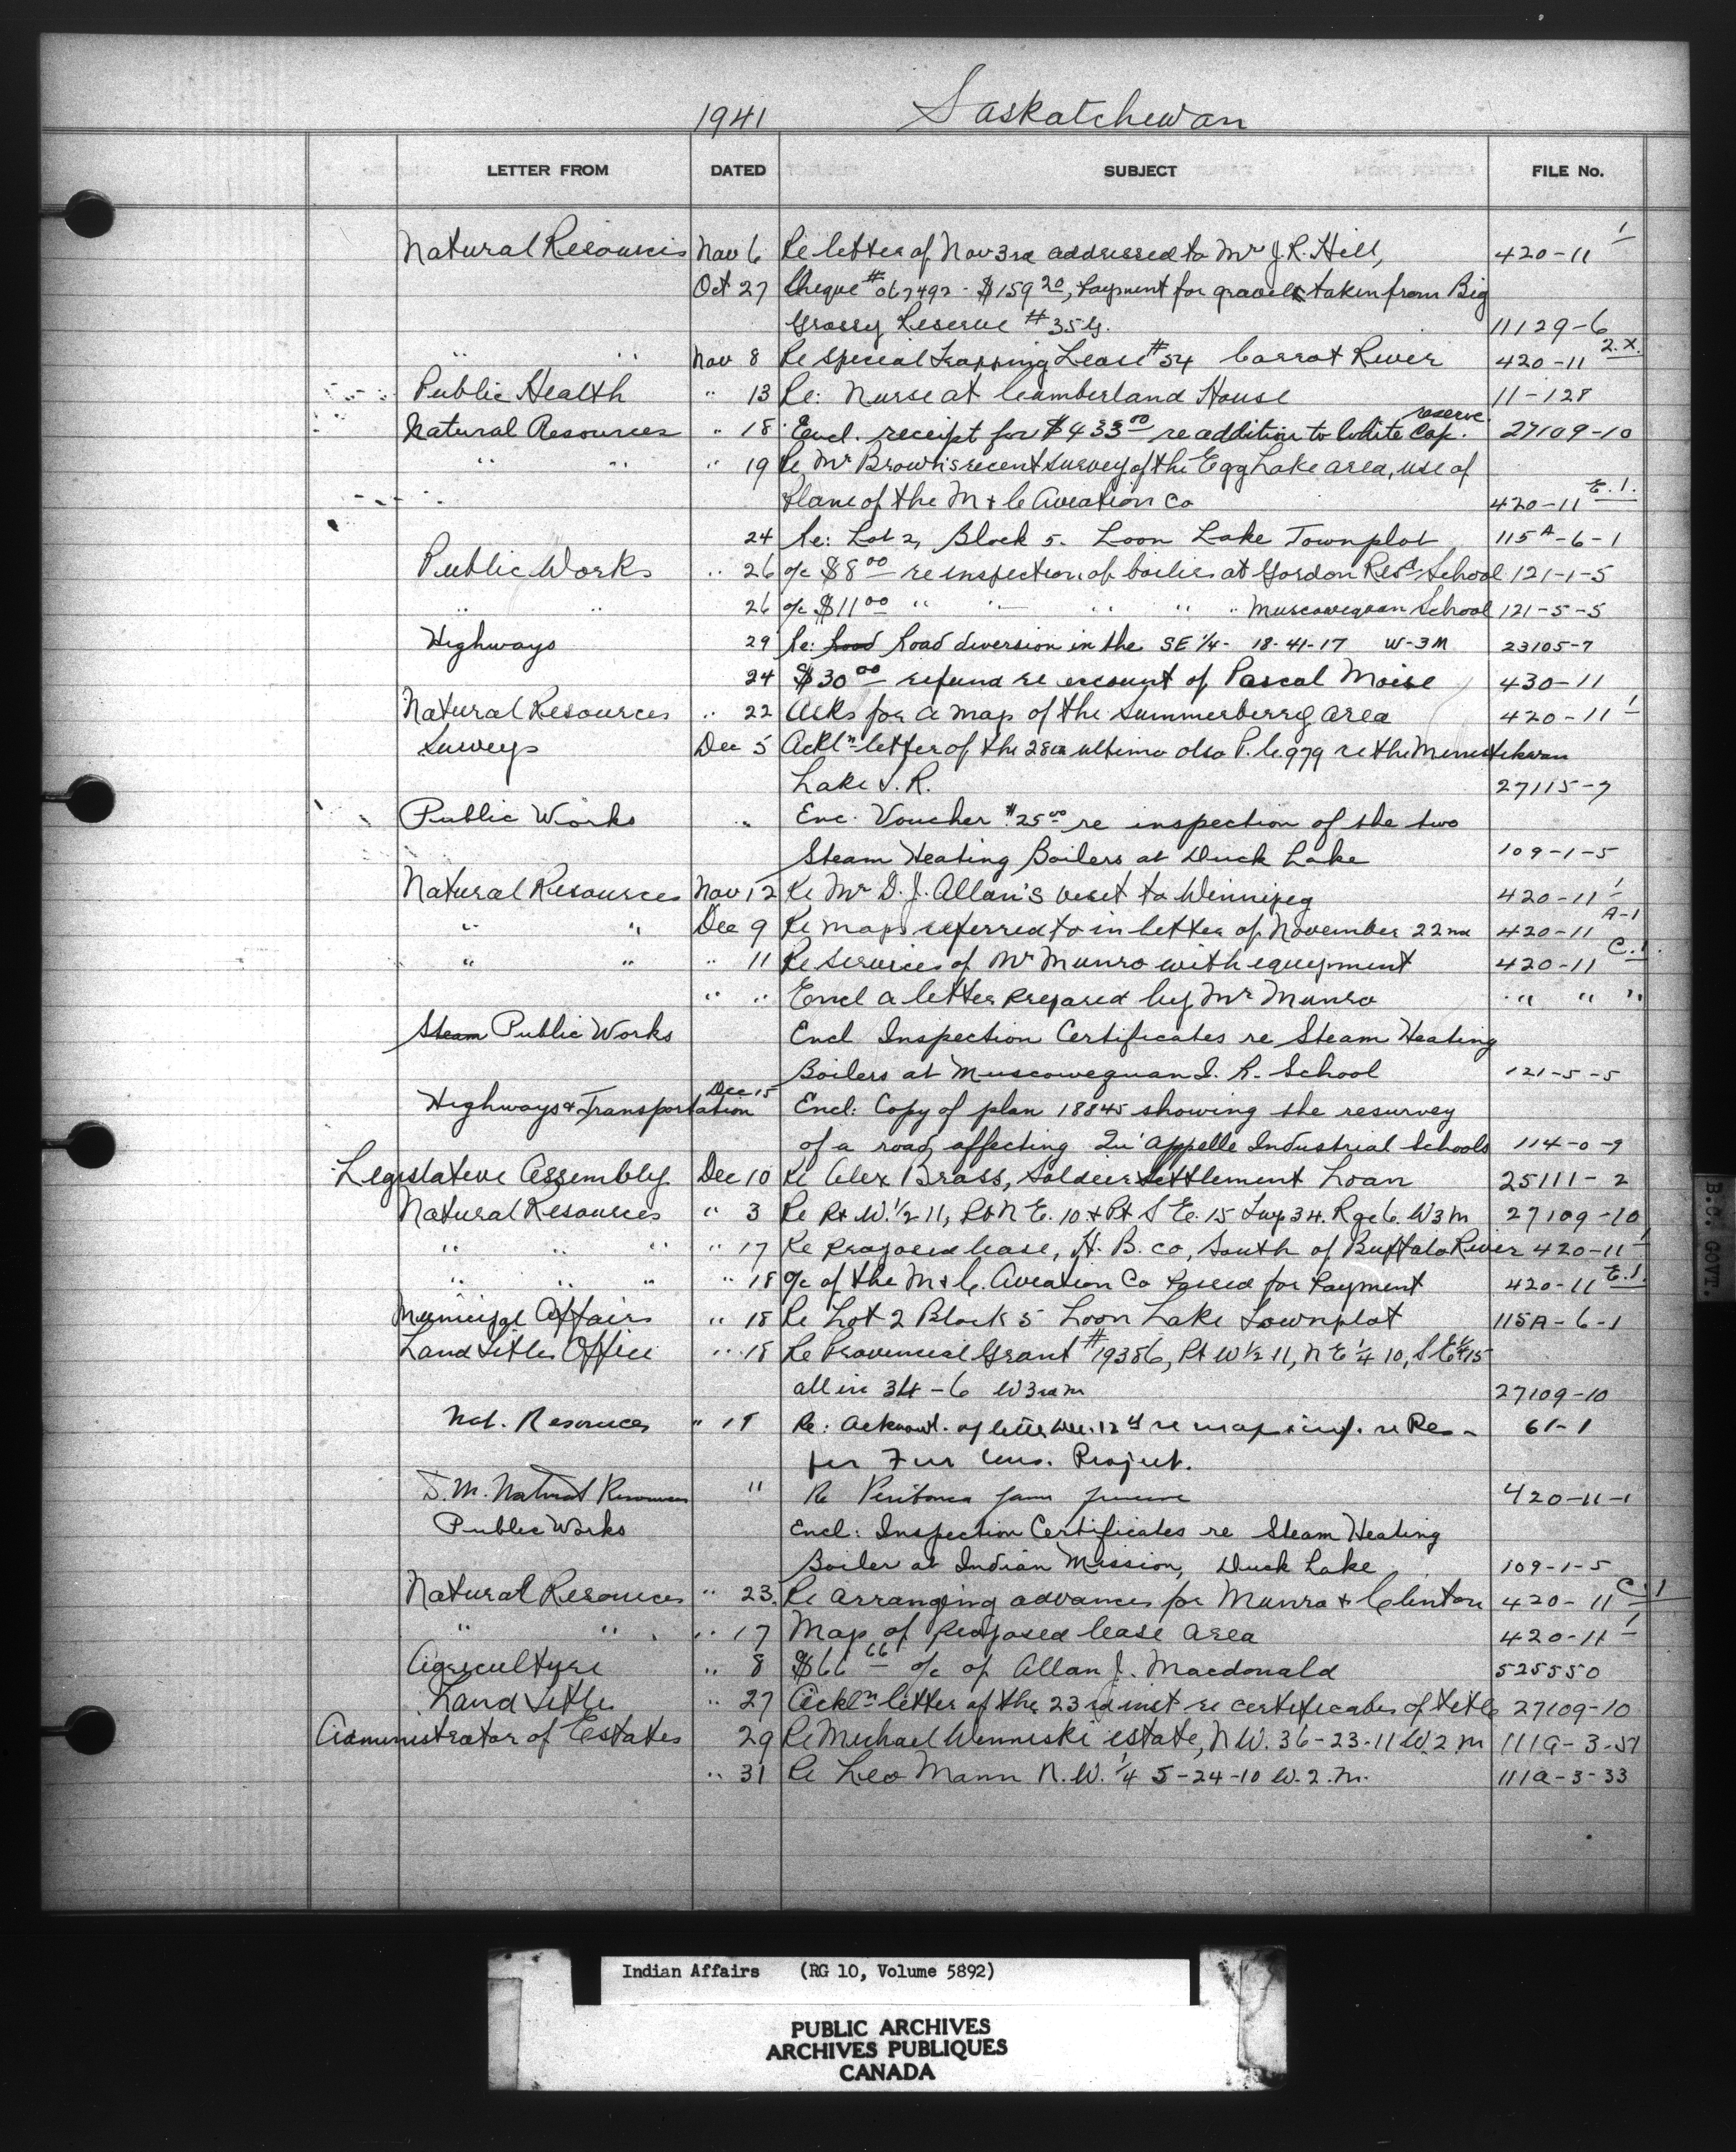 1941 Saskatchewan
LETTER FROM DATED SUBJECT FILE No.
Natural Resources Nov 6 Re letter of Nov 3rd addressed to Mr J.R. Hill, 420-11 1
Oct 27 Cheque # 067492 - $159 20, Payment for gravel taken from Big
Grassy Reserve # 35G. 11129-6
" " Nov 8 Re Special Trapping Lease # 54 Carrot River 420-11 2.X.
Public Health " 13 Re: Nurse at Cumberland House 11-128
Natural Resources " 18 Encl. receipt for $433 00 re addition to White Cap reserve. 27109-10
" " " 19 Re Mr Brown's recent survey of the Egg Lake area, use of
Plane of the M & C Aviation Co 420-11 E.1.
24 Re: Lot 2, Block 5. Loon Lake Townplot 115A-6-1
Public Works " 26 a/c $8 00 re inspection of boilers at Gordon Resd. School 121-1-5
" " 26 a/c $11 00 " " " " " Muscowequan School 121-5-5
Highways 29 Re: Road Road diversion in the SE 1/4 - 18-41-17 W-3M 23105-7
24 $30 00 refund re account of Pascal Moise 430-11
Natural Resources " 22 Asks for a map of the Summerberry area 420-11 1
Surveys Dec 5 Ackln letter of the 28th ultimo also P.C. 979 re the Ministikwan
Lake I.R. 27115-7
Public Works " Enc. Voucher $25 00 re inspection of the two
Steam Heating Boilers at Duck Lake 109-1-5
Natural Resources Nov 12 Re Mr D.J. Allan's visit to Winnipeg 420-11 1
" " Dec 9 Re maps referred to in letter of November 22nd 420-11 A-1
" " " 11 Re services of Mr Munro with equipment 420-11 C.1.
" " Encl a letter prepared by Mr Munro " " "
Steam Public Works Encl Inspection Certificates re Steam Heating
Boilers at Muscowequan I. R. School 121-5-5
Highways & Transportation Dec 15 Encl: Copy of plan 18845 showing the resurvey
of a road affecting Qu'Appelle Industrial Schools 114-0-9
Legislative Assembly Dec 10 Re Alex Brass, Soldier Settlement Loan 25111-2
Natural Resources " 3 Re Pt W. 1/2 11, Pt N E. 10 & Pt S E. 15 Twp 34. Rge 6. W3M 27109-10
" " " " 17 Re proposed lease, H. B. Co, South of Buffalo River 420-11 1
" " " " 18 a/c of the M & C. Aviation Co passed for Payment 420-11 E.1.
Municipal Affairs " 18 Re Lot 2 Block 5 Loon Lake Townplot 115A-6-1
Land Titles Office " 18 Re Provincial Grant # 19386, Pt W 1/2 11, N E 1/4 10, S E 1/4 15
all in 34-6 W3rdM 27109-10
Nat. Resources " 18 Re: Acknowl. of letter Dec. 12th re map & inf. re Res- 61-1
for Fur Cons. Project.
D.M. Natural Resources " Re 420-11-1
Public Works Encl: Inspection Certificates re Steam Heating
Boiler at Indian Mission, Duck Lake 109-1-5
Natural Resources " 23. Re arranging advances for Munro & Clinton 420-11 C-1
" " " 17 Map of proposed lease area 420-11 1
Agriculture " 8 $66 66 a/c of Allan J. Macdonald 525550
Land Titles " 27 Ackln letter of the 23rd inst re certificates of title 27109-10
Administrator of Estates 29 Re Michael Winniski estate, N W. 36-23-11 W.2 M 111a-3-
" 31 Re Leo Mann N.W. 1/4 5-24-10 W.2.M. 111a-3-33
B.C. GOVT.
Indian Affairs (RG 10, Volume 5892)
PUBLIC ARCHIVES
ARCHIVES PUBLIQUES
CANADA